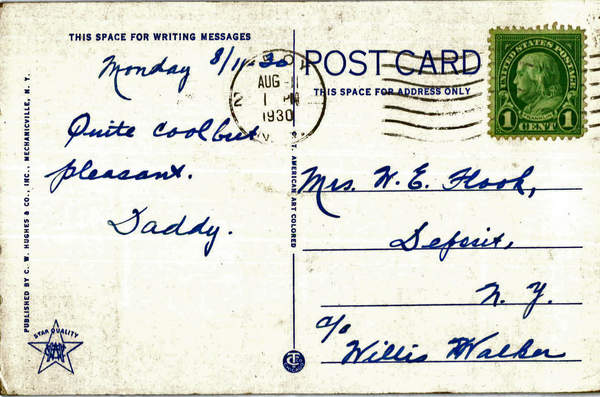 THIS SPACE FOR WRITING MESSAGES
Monday 8/11-30
Quite cool but
pleasant.
Daddy.
PUBLISHED BY C. W. HUGHES & CO., INC., MECHANICVILLE, N. Y.
STAR QUALITY
AUG
1 PM
1930
POST CARD
THIS SPACE FOR ADDRESS ONLY
UNITED STATES POSTAGE
FRANKLIN
1 CENT 1
AMERICAN ART COLORED
Mrs. W. E. Flook,
Deposit,
N. Y.
c/o
Willis Walker